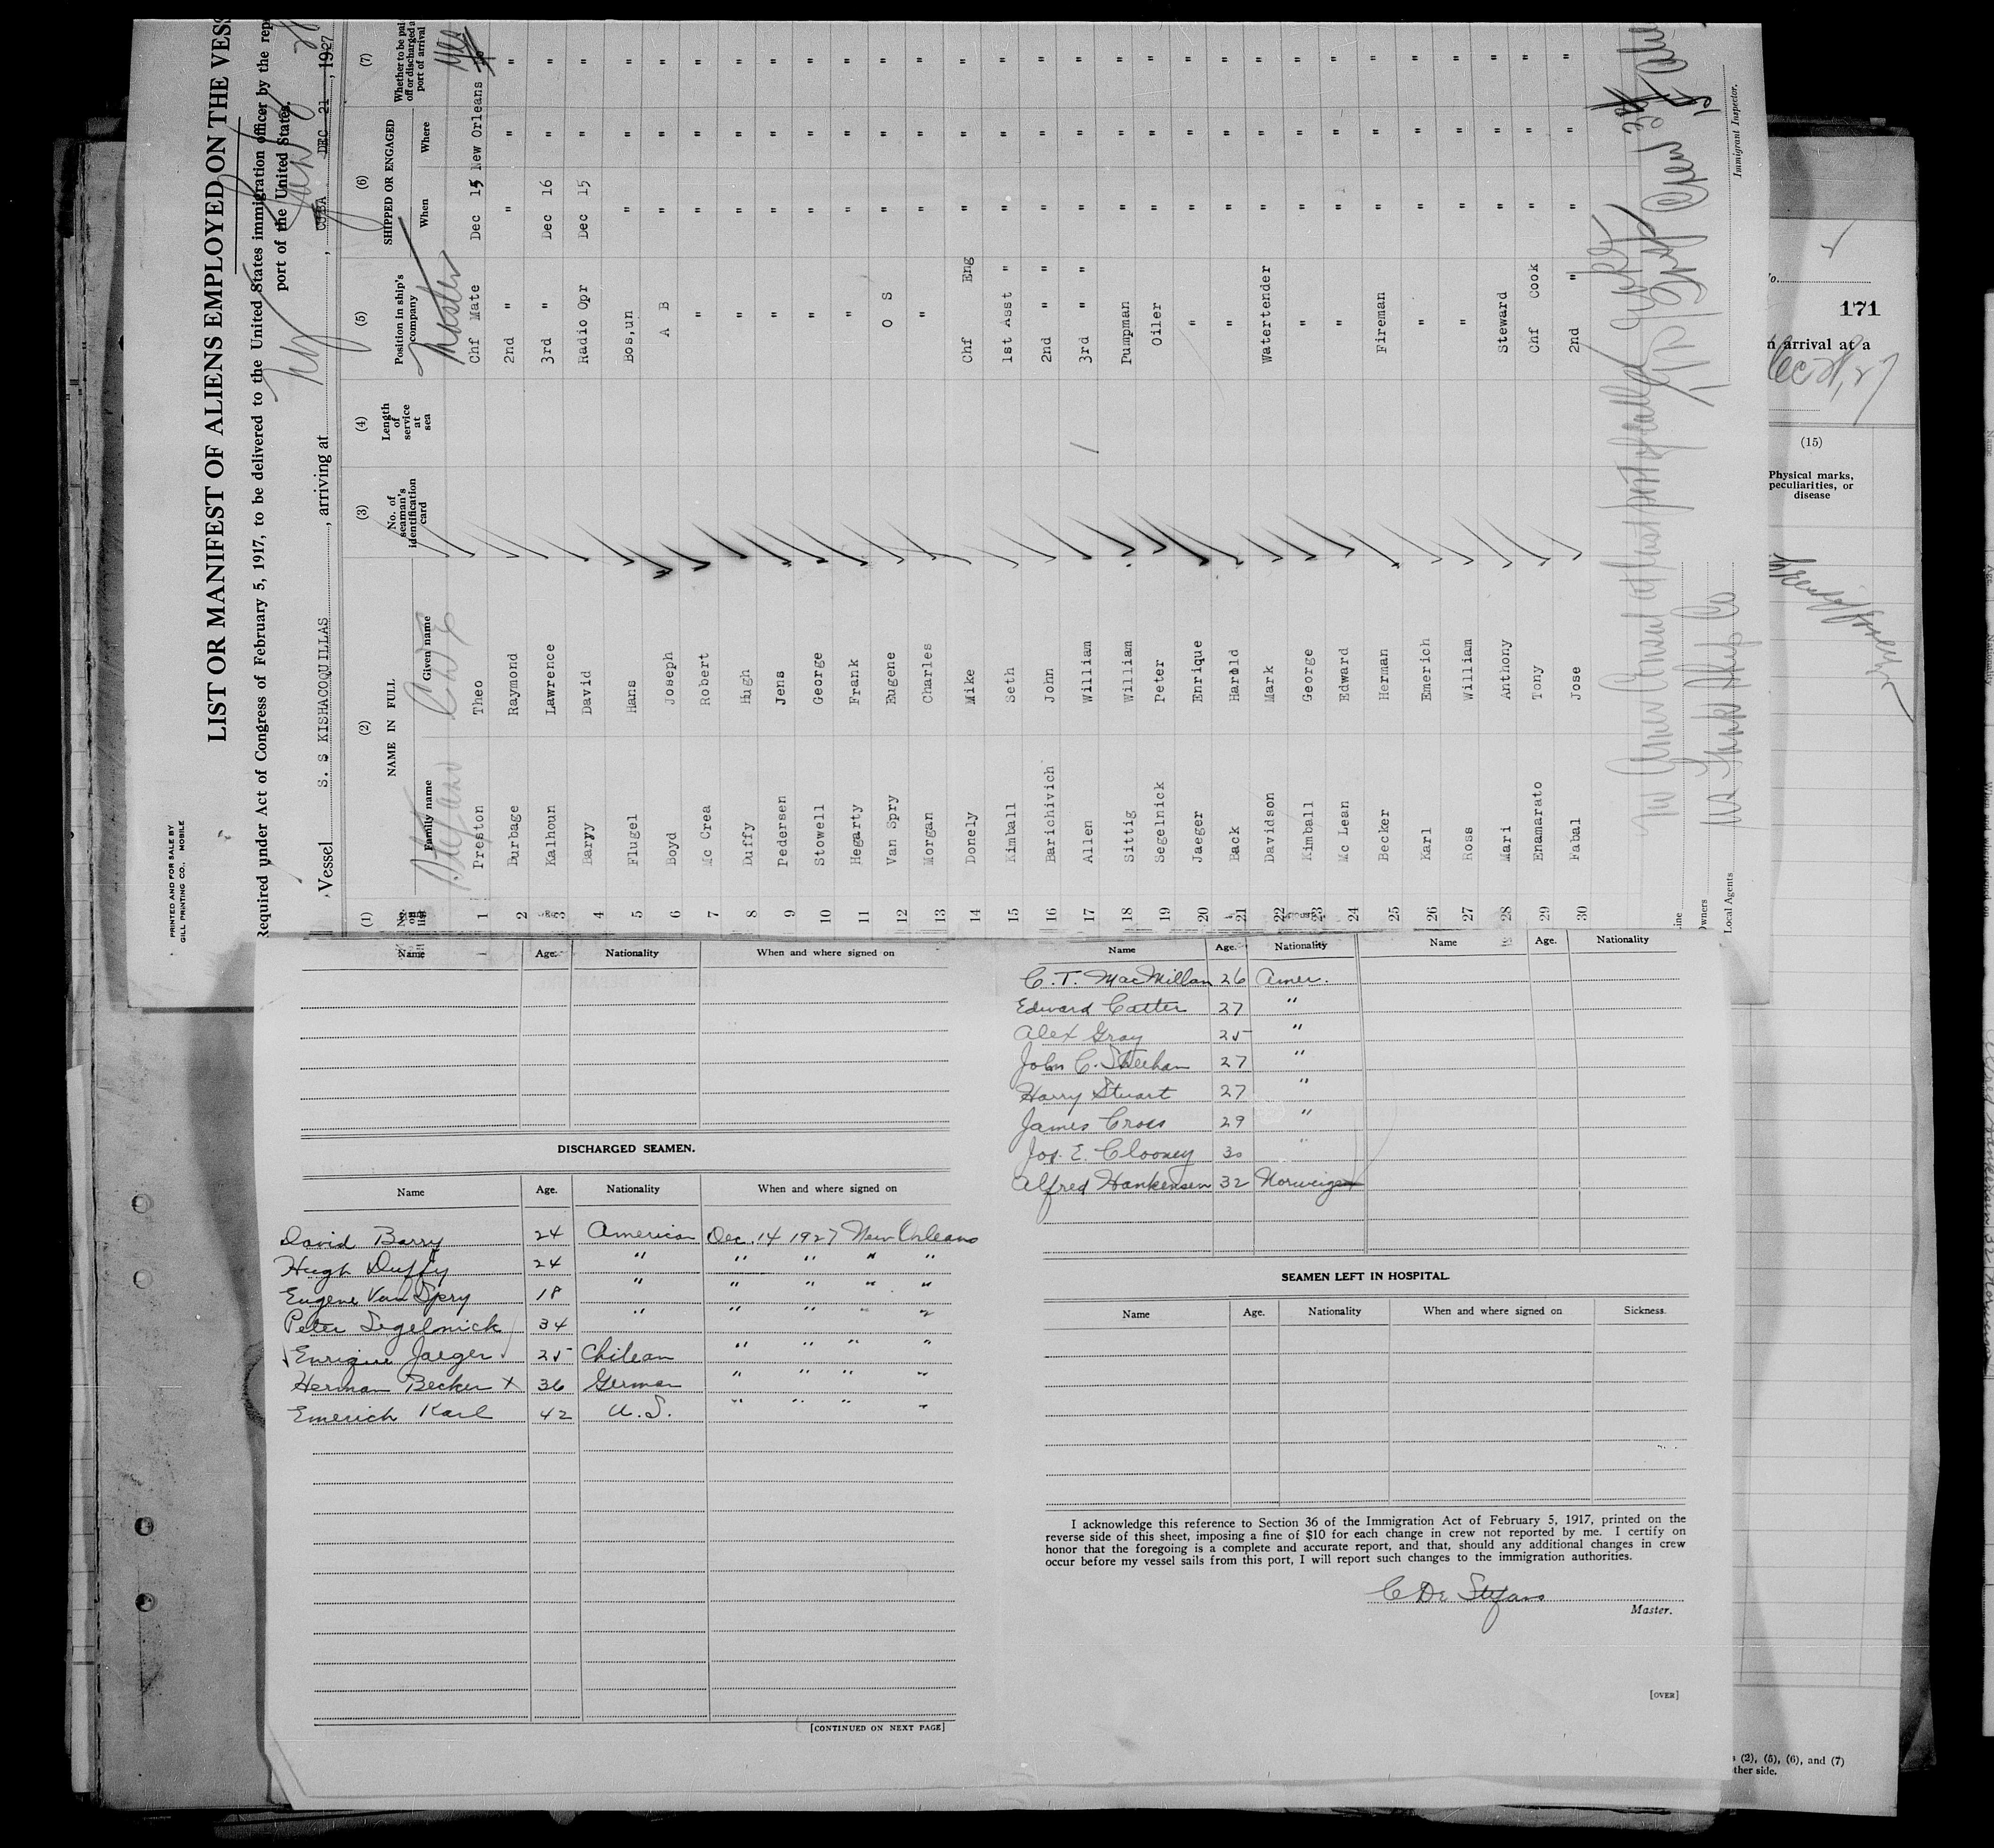 PRINTED AND FOR SALE BY
GILL PRINTING CO., MOBILE
LIST OR MANIFEST OF ALIENS EMPLOYED ON THE VESS
Required under Act of Congress of February 5, 1917, to be delivered to the United States immigration officer by the rep
port of the United States.
Vessel S. S KISHACOQUILLAS, arriving at CUBA, DEC 21, 1927
(1) (2) (3) (4) (5) (6) (7)
No. on list
NAME IN FULL
Family name Given name
No. of seaman's identification card
Length of service at sea
Position in ship's company
SHIPPED OR ENGAGED
When Where
Whether to be paid off or discharged at port of arrival
Master
1 Preston Theo Chf Mate Dec 15 New Orleans
2 Burbage Raymond 2nd " " " "
3 Kalhoun Lawrence 3rd " Dec 16 " "
4 Barry David Radio Opr Dec 15 " "
5 Flugel Hans Bos,un " " "
6 Boyd Joseph A B " " "
7 Mc Crea Robert " " " "
8 Duffy Hugh " " " "
9 Pedersen Jens " " " "
10 Stowell George " " " "
11 Hegarty Frank " " " "
12 Van Spry Eugene O S " " "
13 Morgan Charles " " " "
14 Donely Mike Chf Eng " " "
15 Kimball Seth 1st Asst " " " "
16 Barichivich John 2nd " " " " "
17 Allen William 3rd " " " " "
18 Sittig William Pumpman " " "
19 Segelnick Peter Oiler " " "
20 Jaeger Enrique " " " "
21 Back Harold " " " "
22 Davidson Mark Watertender " " "
23 Kimball George " " " "
24 Mc Lean Edward " " " "
25 Becker Herman Fireman " " "
26 Karl Emerich " " " "
27 Ross William " " " "
28 Mari Anthony Steward " " "
29 Enamarato Tony Chf Cook " " "
30 Fabal Jose 2nd " " " "
No Amer Consul at last port of call
Owners
Local Agents
Immigrant Inspector.
171
n arrival at a
Dec 21, 27
(15)
Physical marks, peculiarities, or disease
Name Age. Nationality When and where signed on
DISCHARGED SEAMEN.
Name Age. Nationality When and where signed on
David Barry 24 American Dec. 14 1927 New Orleans
Hugh Duffy 24 " " " " "
Eugene Van Spry 18 " " " " "
Peter Segelnick 34 " " " " "
Enrique Jaeger 25 Chilean " " " "
Herman Becker x 36 German " " " "
Emerich Karl 42 U.S. " " " "
[CONTINUED ON NEXT PAGE]
Name Age. Nationality Name Age. Nationality
C. T. MacMillan 26 Amer.
Edward Catter 27 "
Alex Gray 25 "
John C. Sheehan 27 "
Harry Stuart 27 "
James Cross 29 "
Jos. E. Clooney 30 "
Alfred Hankensen 32 Norweigan
SEAMEN LEFT IN HOSPITAL.
Name Age. Nationality When and where signed on Sickness.
I acknowledge this reference to Section 36 of the Immigration Act of February 5, 1917, printed on the
reverse side of this sheet, imposing a fine of $10 for each change in crew not reported by me. I certify on
honor that the foregoing is a complete and accurate report, and that, should any additional changes in crew
occur before my vessel sails from this port, I will report such changes to the immigration authorities.
C De Stefano
Master.
[OVER]
s (2), (5), (6), and (7)
ther side.